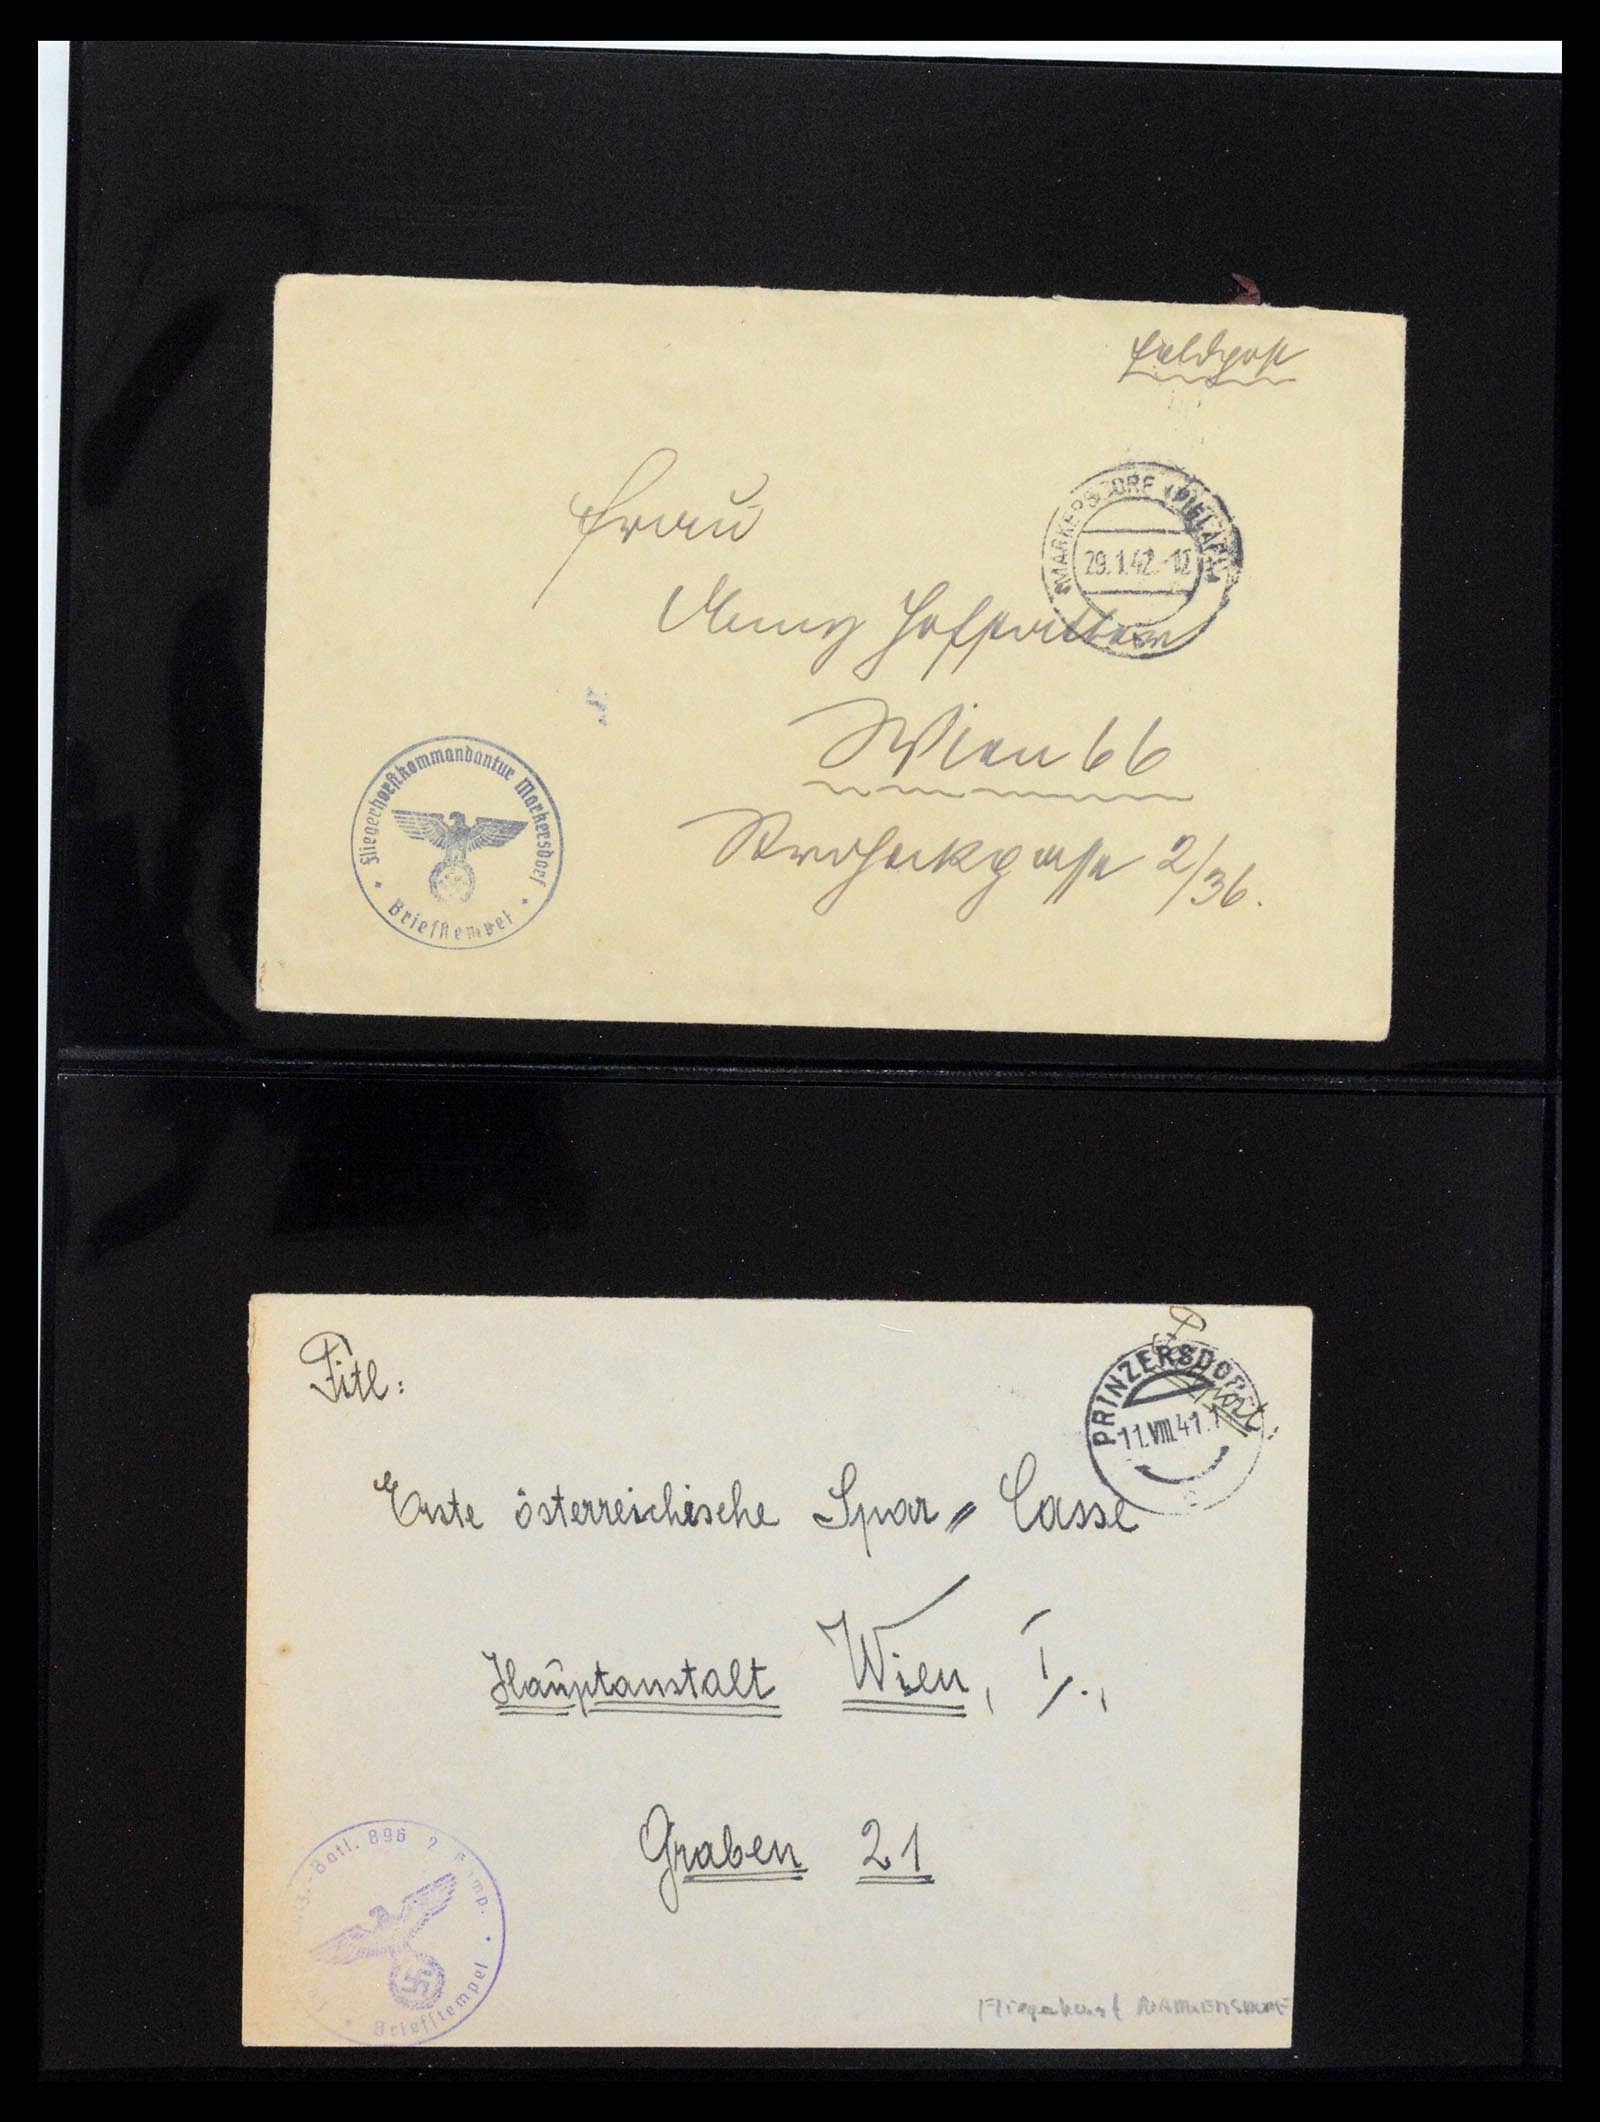 Feldpost
MARKERSDORF (PIELACH)
29.1.42.-12
Frau
Wien 66
2/36.
Fliegerhorstkommandantur Markersdorf
Briefstempel
Titl:
PRINZERSDORF
11.VIII.41.
Erste österreichische Spar〃Casse
Hauptanstalt Wien, I/.,
Graben 21
Batl. 896 2. Komp.
Briefstempel
Fliegerhorst MARKERSDORF